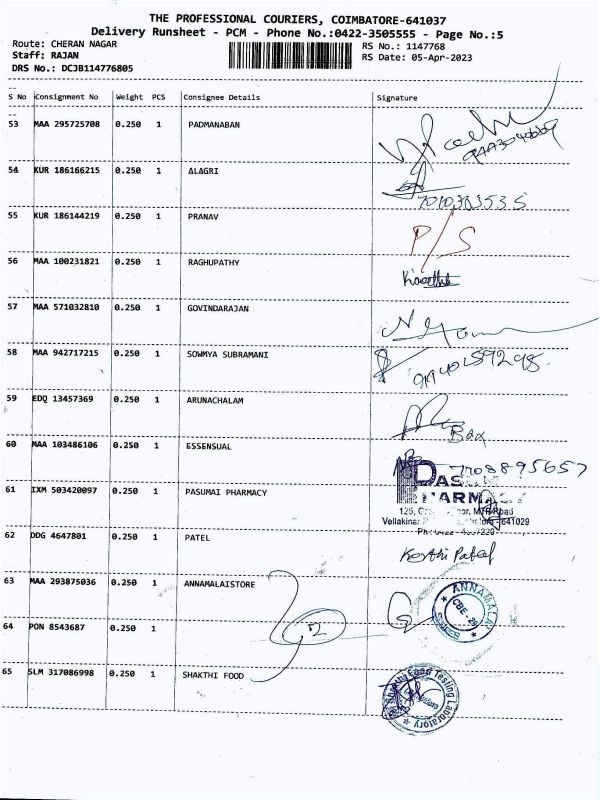 THE PROFESSIONAL COURIERS, COIMBATORE-641037
Delivery Runsheet - PCM - Phone No.:0422-3505555 - Page No.:5
Route: CHERAN NAGAR RS No.: 1147768
Staff: RAJAN RS Date: 05-Apr-2023
DRS No.: DCJB114776805
S No Consignment No Weight PCS Consignee Details Signature
53 MAA 295725708 0.250 1 PADMANABAN
54 KUR 186166215 0.250 1 ALAGRI
7010383535
55 KUR 186144219 0.250 1 PRANAV
P/S
56 MAA 100231821 0.250 1 RAGHUPATHY
57 MAA 571032810 0.250 1 GOVINDARAJAN
58 MAA 942717215 0.250 1 SOWMYA SUBRAMANI
59 EDQ 13457369 0.250 1 ARUNACHALAM
Box
60 MAA 103486106 0.250 1 ESSENSUAL
7708895657
61 IXM 503420097 0.250 1 PASUMAI PHARMACY
125,
Vellakinar 641029
62 DDG 4647801 0.250 1 PATEL
Patel
63 MAA 293875036 0.250 1 ANNAMALAISTORE
ANNAMALAI STORES CBE-29
64 PON 8543687 0.250 1
65 SLM 317086998 0.250 1 SHAKTHI FOOD
Food Testing Laboratory